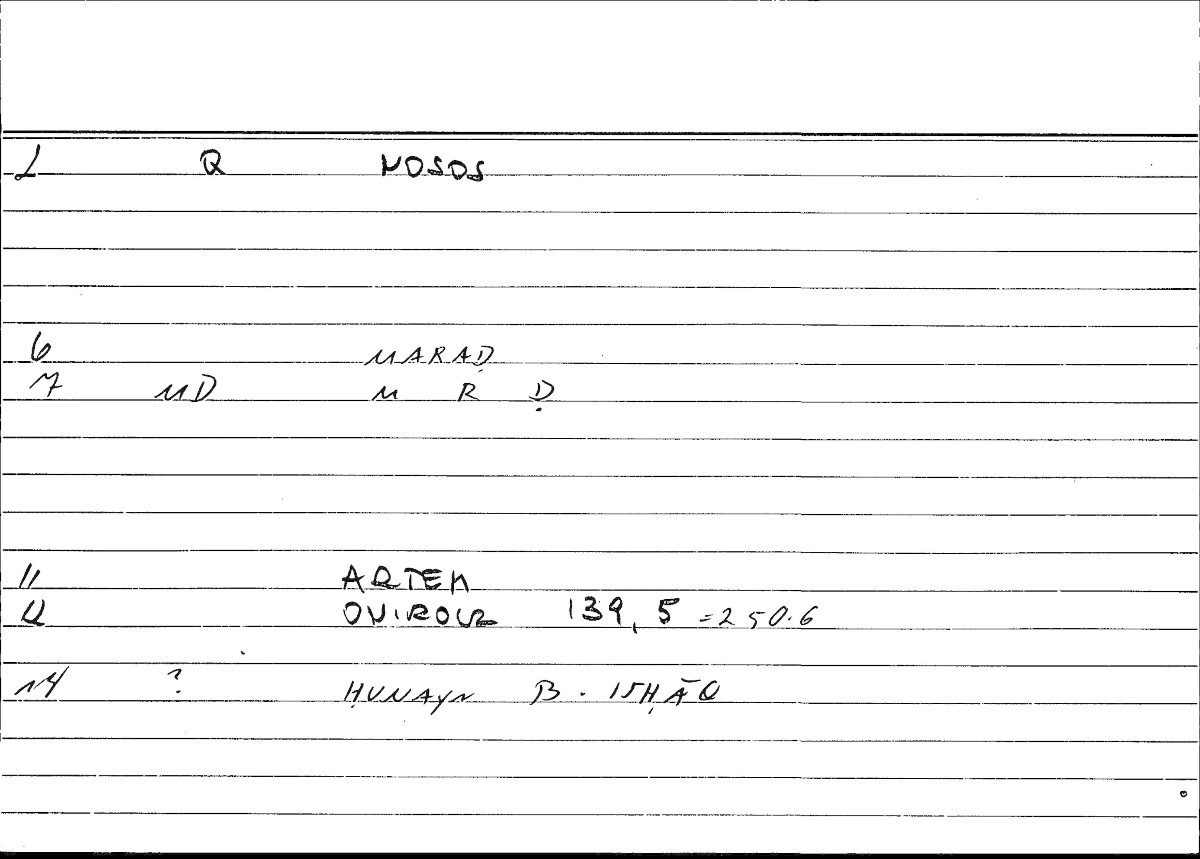 1 Q NOSOS
6 MARAḌ
7 MD M R Ḍ
11 ARTEM
12 ONIROCR 139, 5 = 250.6
14 ? ḤUNAYN B. ISḤĀQ